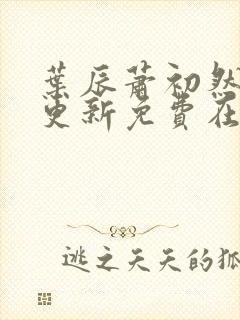 葉辰蕭初然
更新免費在
逃之夭夭的狐